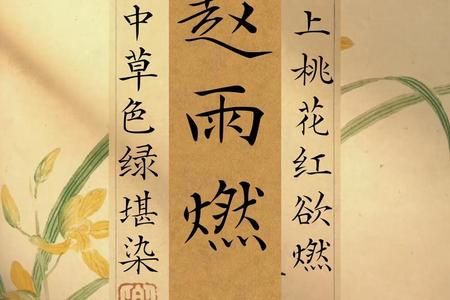 上桃花红欲燃
赵雨燃
中草色绿堪染